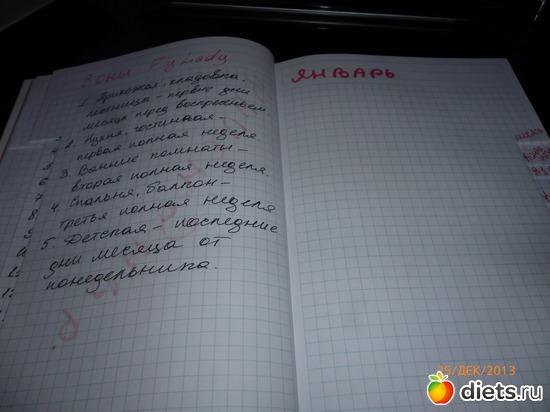 Зоны Fylady
1. Прихожая, кладовка,
лестница - первые дни
месяца перед воскресеньем
2. Кухня, гостинная -
первая полная неделя
3. Ванные комнаты -
вторая полная неделя.
4. Спальня, балкон -
третья полная неделя
5. Детская - последние
дни месяца от
понедельника.
ЯНВАРЬ
25/ДЕК/2013
diets.ru